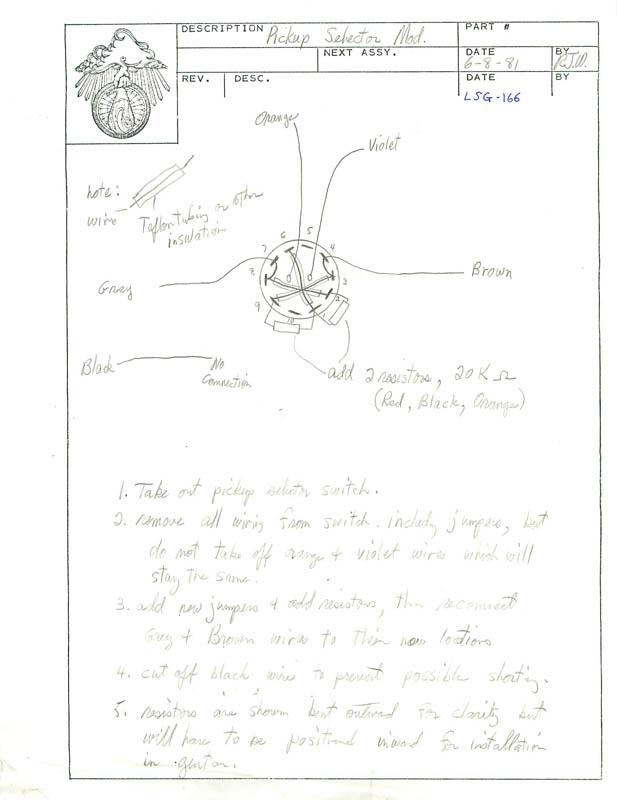 DESCRIPTION Pickup Selector Mod.
PART #
NEXT ASSY.
DATE 6-8-81
BY R.J.W.
REV.
DESC.
DATE
BY
LSG-166
Orange
Violet
note:
wire
Teflon tubing or other
insulation
6
5
7
4
8
3
9
2
10
1
Grey
Brown
Black
No
Connection
add 2 resistors, 20K Ω
(Red, Black, Orange)
1. Take out pickup selector switch.
2. remove all wiring from switch. including jumpers, but
do not take off orange & violet wires which will
stay the same.
3. add new jumpers & add resistors, then reconnect
Grey & Brown wires to their new loctions
4. cut off black wire to prevent possible shorting.
5. resistors are shown bent outward for clarity but
will have to be positioned inward for installation
in guitar.